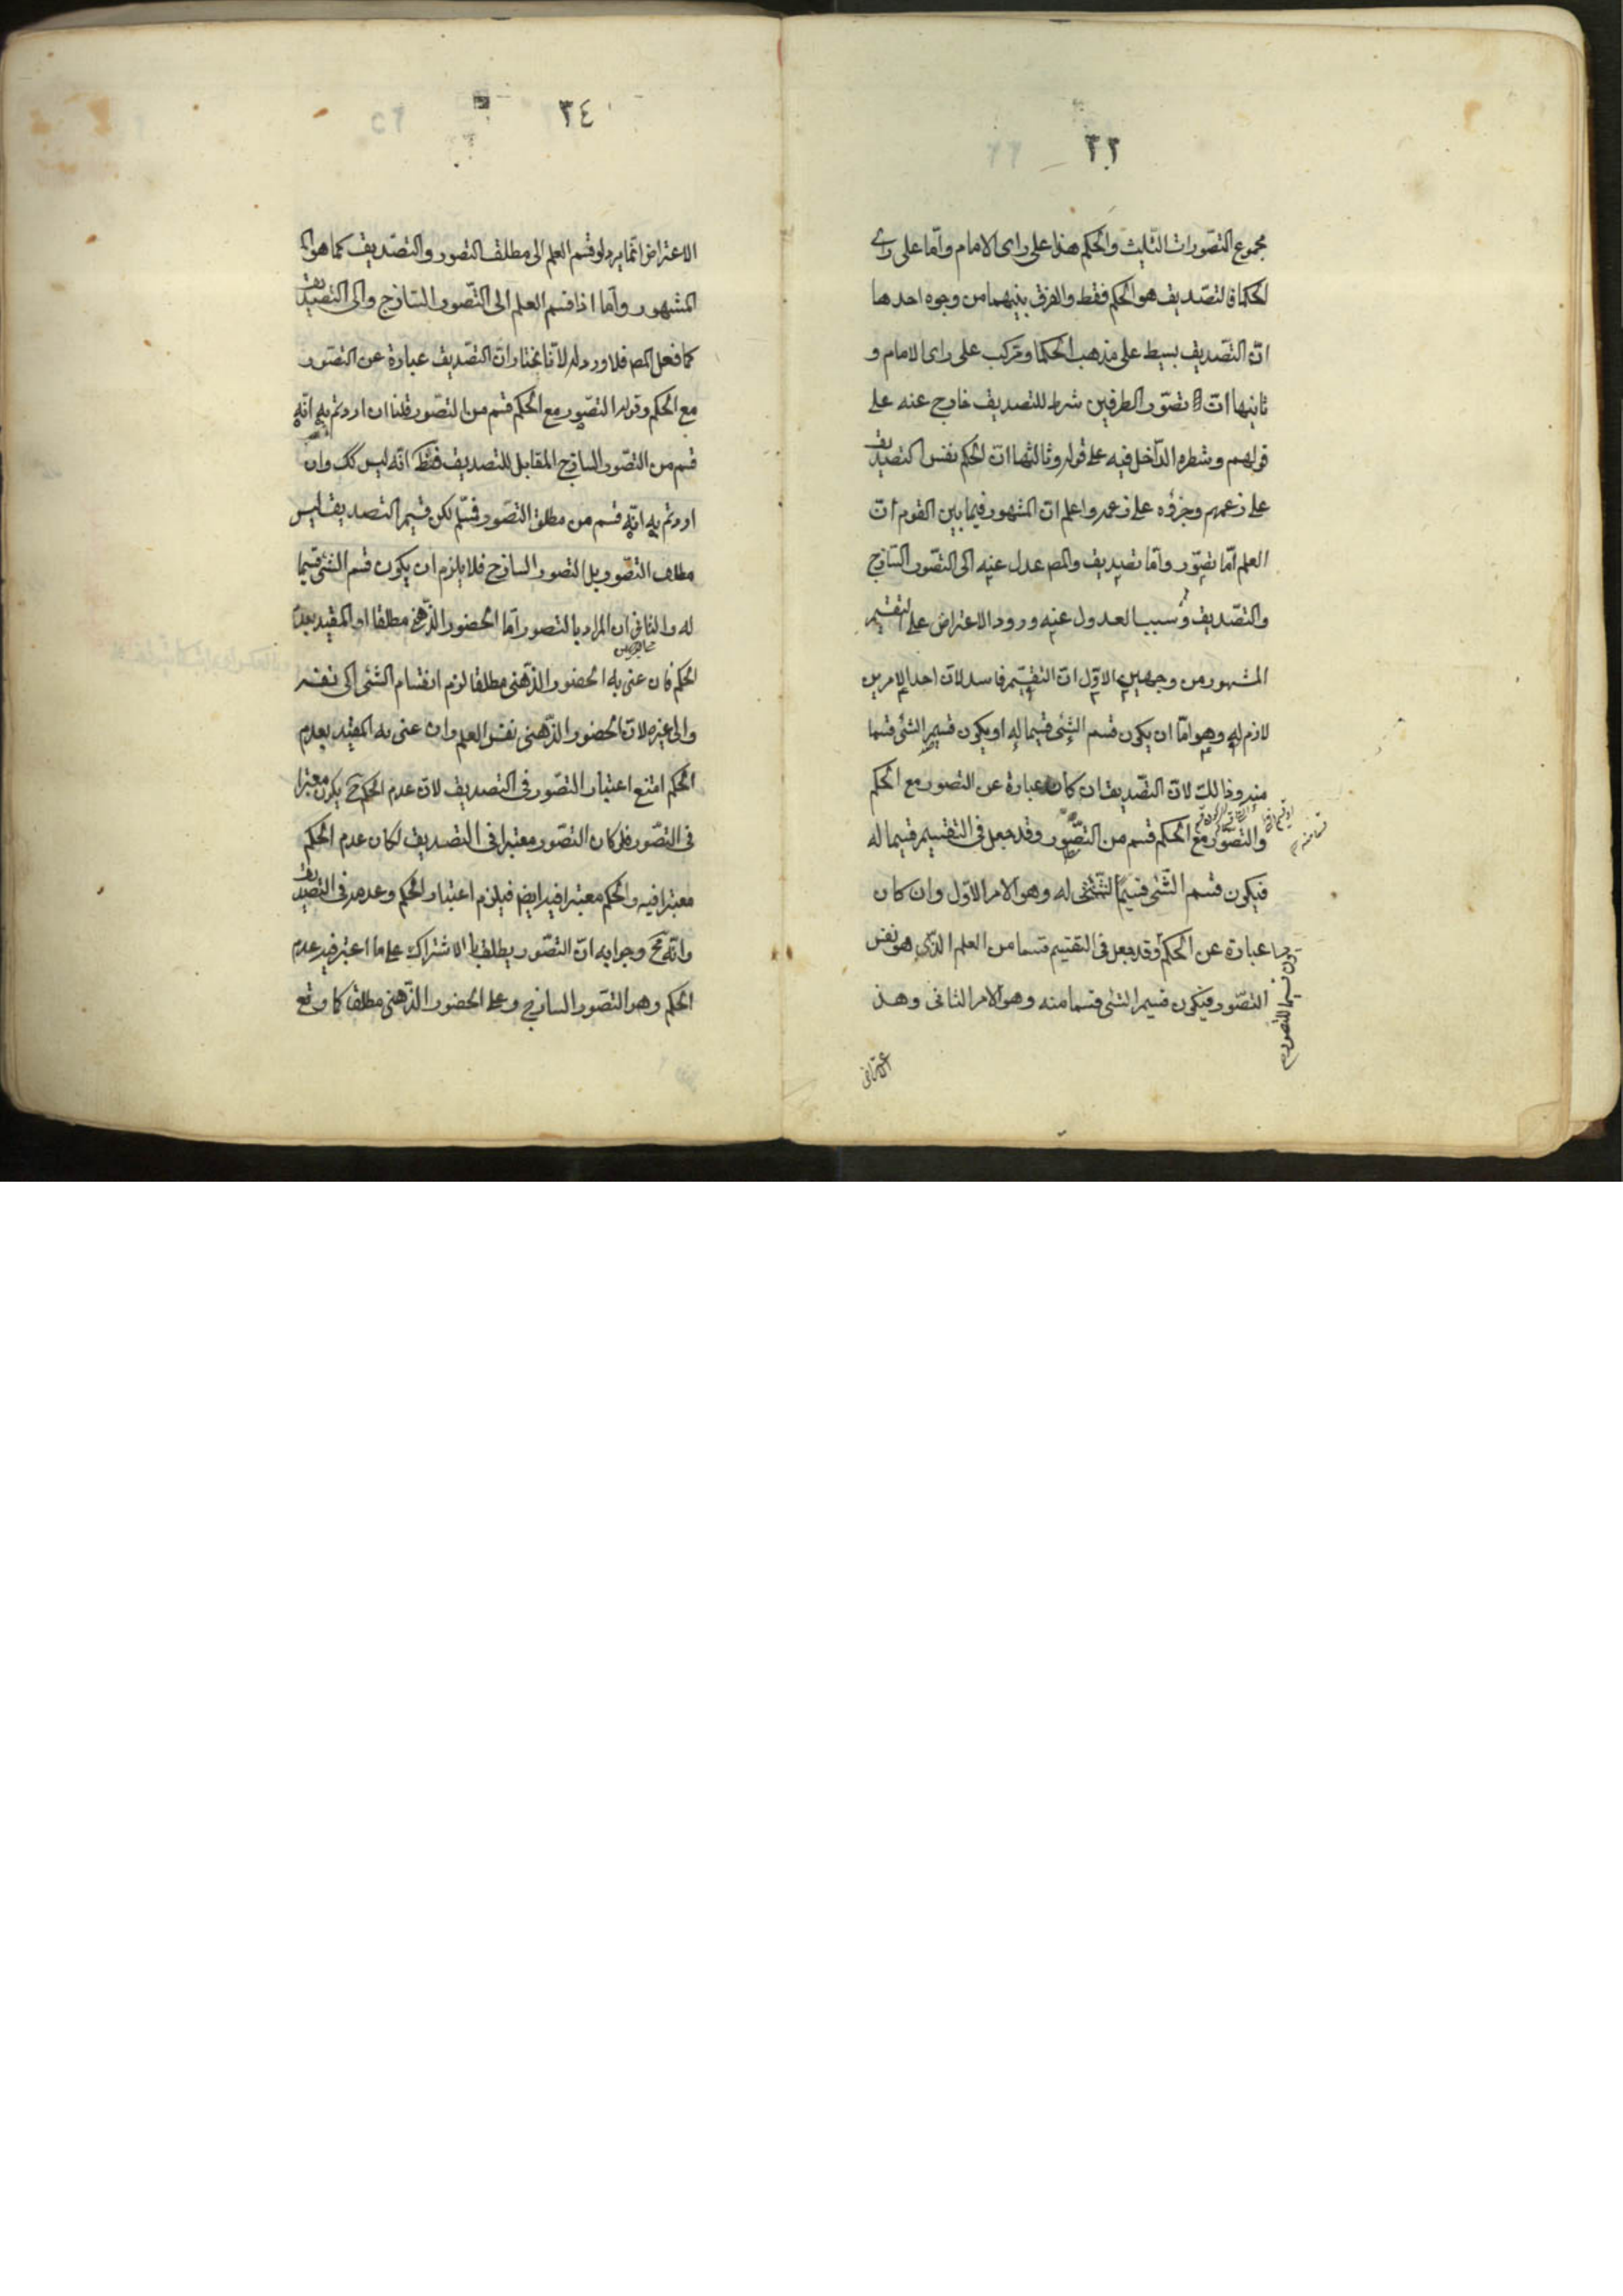 ٣٣
مجموع التصورات الثلث والحكم هذا على راى الامام واما على راى
الحكما فالتصديق هو الحكم فقط والفرق بينهما من وجوه احدها
ان التصديق بسيط على مذهب الحكما ومركب على راى الامام و
ثانيها ان تصور الطرفين شرط للتصديق خارج عنه على
قولهم وشطره الداخل فيه على قوله وثالثها ان الحكم نفس التصديق
على زعمهم وجزؤه على زعمه واعلم ان المشهور فيما بين القوم ان
العلم اما تصور واما تصديق والمص عدل عنه الى التصور الساذج
والتصديق وسبب العدول عنه ورود الاعتراض على التقسيم
المشهور من وجهين الاول ان التقسيم فاسد لان احد الامرين
لازم له وهو اما ان يكون قسم الشئ قسيما له او يكون قسيم الشئ قسما
منه وذالك لان التصديق ان كان عبارة عن التصور مع الحكم
والتصور مع الحكم قسم من التصور وقد جعل فى التقسيم قسيما له
فيكون قسم الشئ قسيما له وهو الامر الاول وان كان
عبارة عن الحكم وقد جعل فى التقسيم قسما من العلم الذى هو نفس
التصور فيكون قسيم الشئ قسما منه وهو الامر الثانى وهذا
قسما منه
الاعتراض
٣٤
الاعتراض انما يرد لو قسم العلم الى مطلق التصور والتصديق كما هو
المشهور واما اذا قسم العلم الى التصور الساذج والى التصديق
كما فعل المص فلا ورود له لانا نختار ان التصديق عبارة عن التصور
مع الحكم وقوله التصور مع الحكم قسم من التصور قلنا ان اردتم به انه
قسم من التصور الساذج المقابل للتصديق فظ انه ليس كك وان
اردتم به انه قسم من مطلق التصور فمسلم لكن قسيم التصديق ليس
مطلق التصور بل التصور الساذج فلا يلزم ان يكون قسم الشئ قسيما
له والثانى ان المراد بالتصور اما الحضور الذهنى مطلقا او المقيد بعدم
الحكم فان عنى به الحضور الذهنى مطلقا لزم انقسام الشئ الى نفسه
والى غيره لان الحضور الذهنى نفس العلم وان عنى به المقيد بعدم
الحكم امتنع اعتبار التصور فى التصديق لان عدم الحكم ح يكون معتبرا
فى التصور فلو كان التصور معتبرا فى التصديق لكان عدم الحكم
معتبرا فيه والحكم معتبرا فيه ايض فيلزم اعتبار الحكم وعدمه فى التصديق
وانه مح وجوابه ان التصور يطلق بالاشتراك على ما اعتبر فيه عدم
الحكم وهو التصور الساذج وعلى الحضور الذهنى مطلقا كما وقع